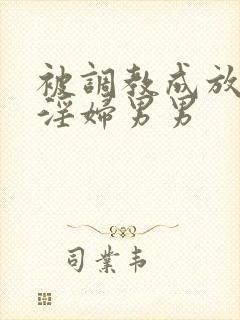 被調教成放
淫婦男男
司業韦